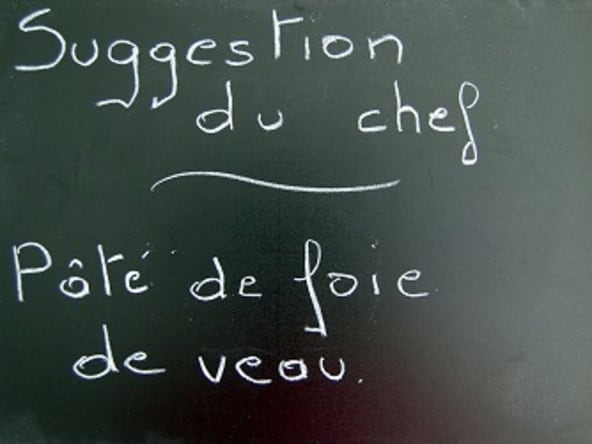 Suggestion
du chef
Pâté de foie
de veau.